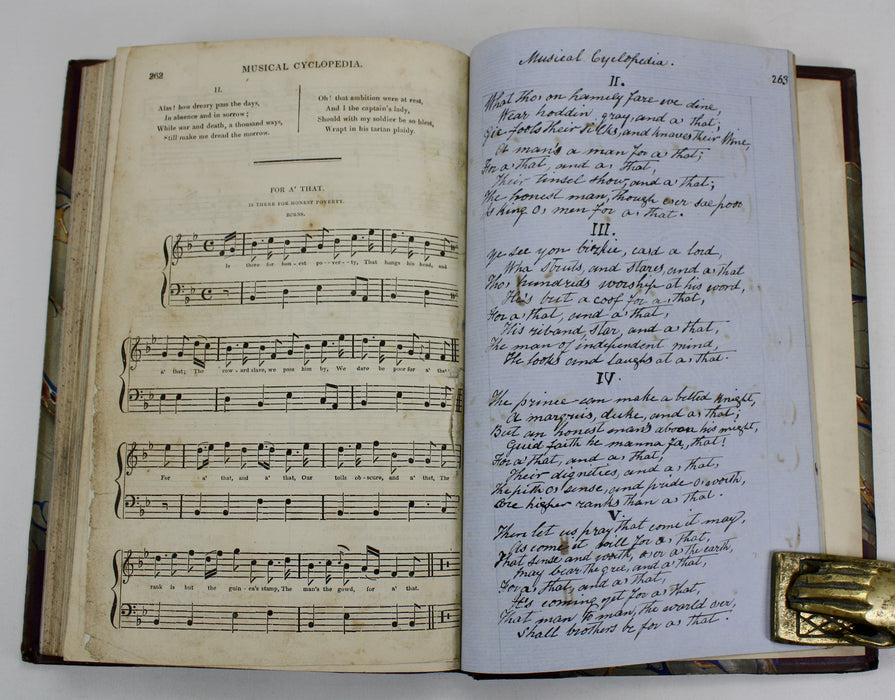 262
MUSICAL CYCLOPEDIA.
II.
Alas! how dreary pass the days,
In absence and in sorrow;
While war and death, a thousand ways,
Still make me dread the morrow.
Oh! that ambition were at rest,
And I the captain's lady,
Should with my soldier be so blest,
Wrapt in his tartan plaidy.
FOR A' THAT.
IS THERE FOR HONEST POVERTY.
BURNS.
Is there for hon-est po-ver-ty, That hangs his head, and
a' that; The cow-ard slave, we pass him by, We dare be poor for a' that
For a' that, and a' that, Our toils ob-scure, and a' that, The
rank is but the guin-ea's stamp, The man's the gowd, for a' that.
Musical Cyclopedia.
263
II.
What tho, on hamily fare we dine,
Wear hoddin, gray, and a, that;
Gie fools their silks, and knaves their Wine,
A man,s a man for a, that;
For a, that, and a, that,
Their tinsel show, and a, that;
The honest man, though ever sae poor
Is king o, men for a, that.
III.
Ye see yon birkie, ca,d a lord,
Wha struts, and stares, and a, that
Tho, hundrids worship at his word,
He's but a coof for a, that,
For a, that, and a, that,
His riband, star, and a, that,
The man of independent mind,
He looks and laughs at a, that.
IV.
The prince can make a belted knight,
A marquis, duke, and a, that;
But an honest man,s aboon his might,
Guid faith he manna fa, that!
For a, that, and a, that,
Their dignities, and a, that,
The pith o, sense, and pride o, worth,
Are higher ranks than a, that.
V.
Then let us pray that come it may,
As come it will for a, that,
That sense and worth, o,er a, the earth,
May bear the gree, and a, that,
For a, that, and a, that,
It's coming yet for a, that,
That man to man, the world over,
Shall brothers be for a, that.